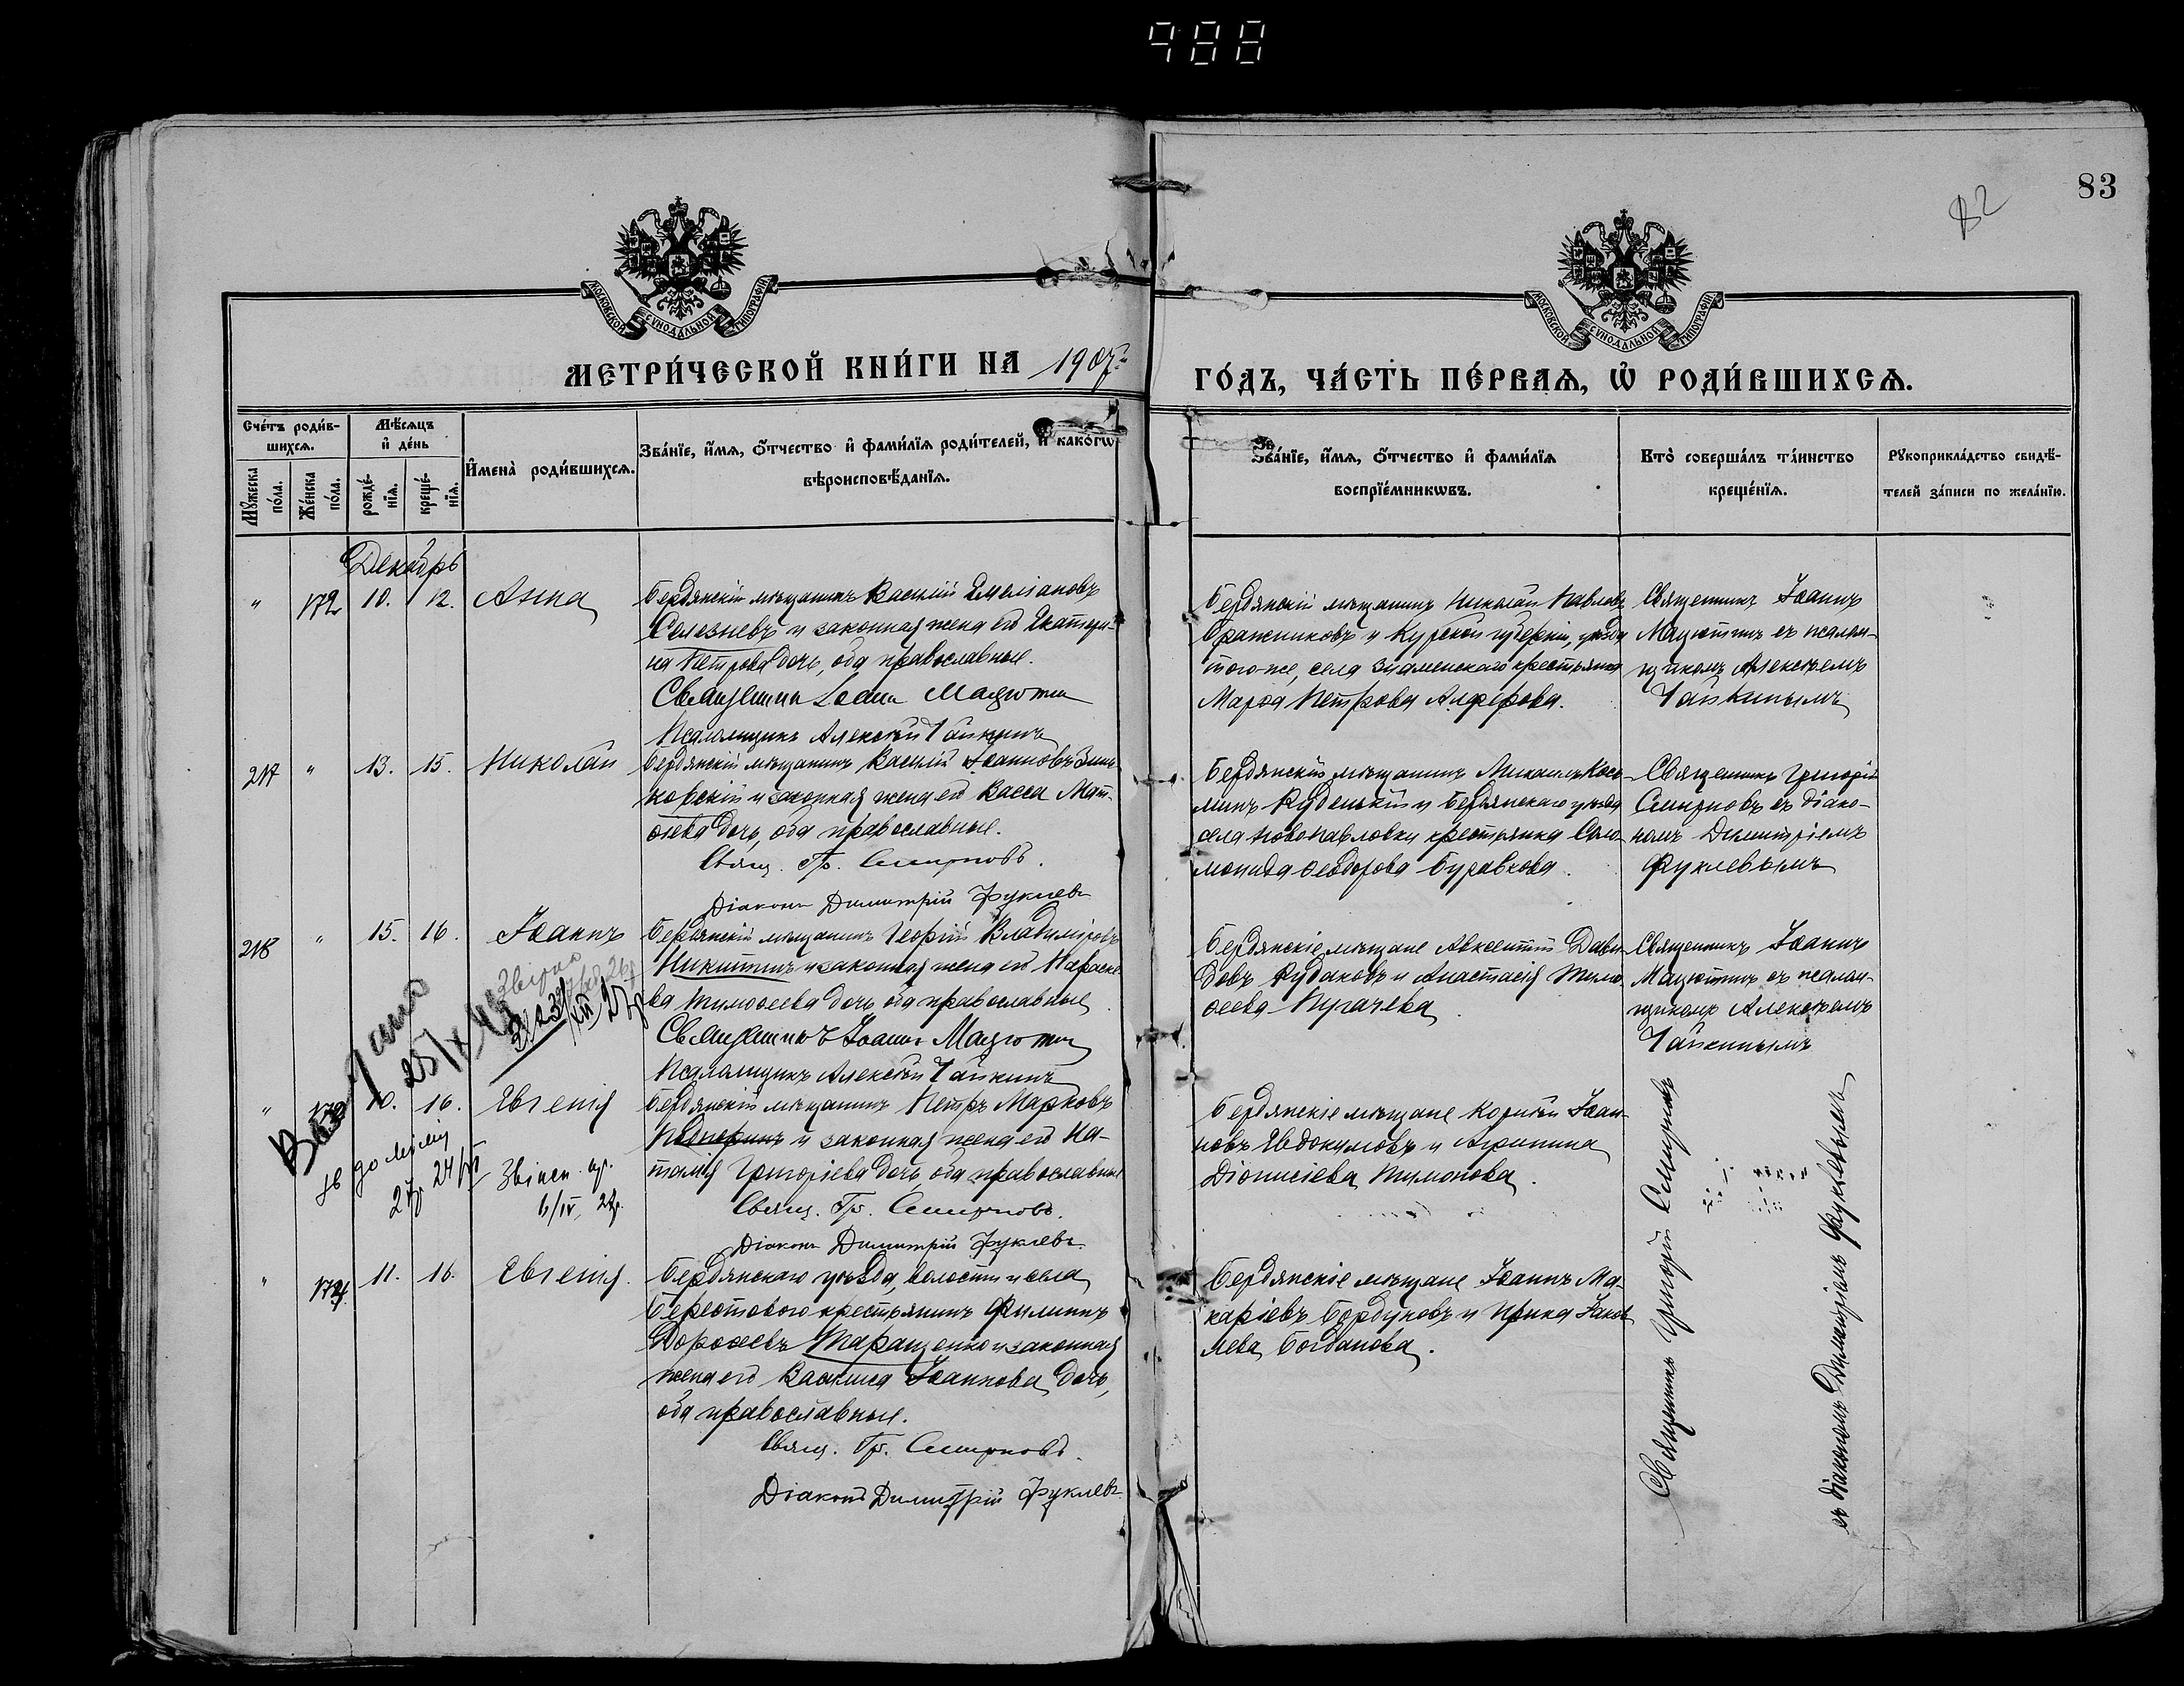 988
83
82
МОСКОВСКОЙ СѴНОДАЛЬНОЙ ТИПОГРАФІИ
МОСКОВСКОЙ СѴНОДАЛЬНОЙ ТИПОГРАФІИ
МЕТРИ́ЧЕСКОЙ КНИ́ГИ НА 1907
ГО́ДЪ, ЧА́СТЬ ПЕ́РВАѦ, Ѡ҆ РОДИ́ВШИХСѦ.
Сче́тъ роди́в-
шихсѧ.
Мꙋ́жеска по́ла.
Же́нска по́ла.
Мѣ́сѧцъ
и҆ де́нь
рожде́-
нїѧ.
креще́-
нїѧ.
И҆мена̀ роди́вшихсѧ.
Зва́нїе, и҆́мѧ, ѻ҆́тчество и҆ фами́лїѧ роди́телей, и҆ како́гѡ
вѣроисповѣ́данїѧ.
Зва́нїе, и҆́мѧ, ѻ҆́тчество и҆ фами́лїѧ
воспрїе́мникѡвъ.
Кто̀ соверша́лъ та́инство
креще́нїѧ.
Рꙋкоприкла́дство свидѣ́-
телей за́писи по жела́нїю.
Декабрь
" 172 10. 12. Анна
Бердянскій мѣщанинъ Василій Емеліановъ
Селезневъ и законная жена его Екатери-
на Петрова дочь, оба православные.
Священникъ Іоаннъ Мацютинъ
Псаломщикъ Алексѣй Чайкинъ
Бердянскій мѣщанинъ Николай Павловъ
Бражниковъ и Курской губерніи, уѣзда
того-же, села Знаменскаго крестьянка
Марѳа Петрова Алферова.
Священникъ Іоаннъ
Мацютинъ съ псалом-
щикомъ Алексѣемъ
Чайкинымъ
217 " 13. 15. Николай
Бердянскій мѣщанинъ Василій Іоанновъ Зинь-
ковскій и законная жена его Васса Мат-
ѳеева дочь, оба православные.
Свящ. Гр. Смирновъ.
Діаконъ Димитрій Фуклевъ
Бердянскій мѣщанинъ Михаилъ Кось-
минъ Руденькій и Бердянскаго уѣзда
села Новопавловки крестьянка Соло-
монида Ѳеодорова Буравкова.
Священникъ Григорій
Смирновъ съ діако-
номъ Димитріемъ
Фуклевымъ
218 " 15. 16. Іоаннъ
Бердянскій мѣщанинъ Георгій Владиміровъ
Никитинъ и законная жена его Параске-
ва Тимоѳеева дочь оба православные.
Священникъ Іоаннъ Мацютинъ
Псаломщикъ Алексѣй Чайкинъ
Бердянскіе мѣщане Авксентій Дави-
довъ Рудаковъ и Анастасія Тимо-
ѳеева Пугачева
Священникъ Іоаннъ
Мацютинъ съ псалом-
щикомъ Алексѣемъ
Чайкинымъ
" 173 10. 16. Евгенія
Бердянскій мѣщанинъ Петръ Марковъ
и законная жена его На-
талія Григоріева дочь, оба православные
Свящ. Гр. Смирновъ.
Діаконъ Димитрій Фуклевъ.
Бердянскіе мѣщане Корнѣй Іоан-
новъ Евдокимовъ и Агрипина
Діонисіева Тимонова.
6/IV
" 174 11. 16. Евгенія.
Бердянскаго уѣзда, волости и села
Берестового крестьянинъ Филиппъ
Дороѳеевъ Таращенко и законная
жена его Василиса Іоаннова дочь,
оба православные.
Свящ. Гр. Смирновъ.
Діаконъ Димитрій Фуклевъ.
Бердянскіе мѣщане Іоаннъ Ма-
каріевъ Бордуновъ и Ирина Іаков-
лева Богданова.
Священникъ Григорій Смирновъ
съ діакономъ Димитріемъ Фуклевымъ